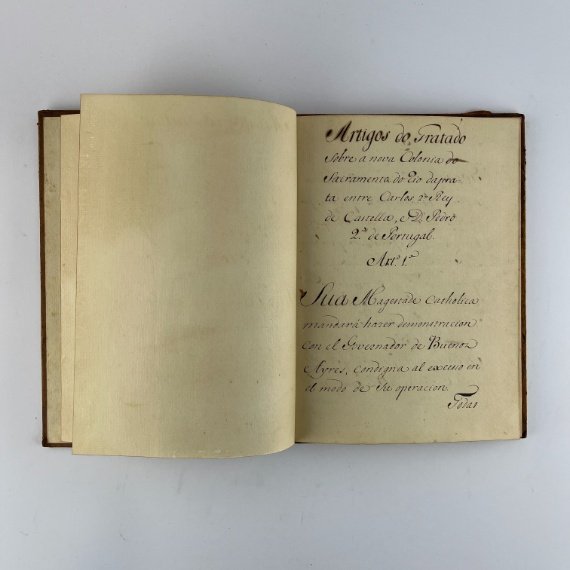 Artigos do Tratado
sobre a nova Colonia do
Sacramento do Rio dapra-
ta entre Carlos 2º Rey
de Castella, e D. Pedro
2.º de Portugal.
Art.º 1.º
Sua Magestade Catholica
mandará hazer demonstracion
con el Governador de Buenos
Ayres, condigna al exceso en
el modo de su operacion
Todas